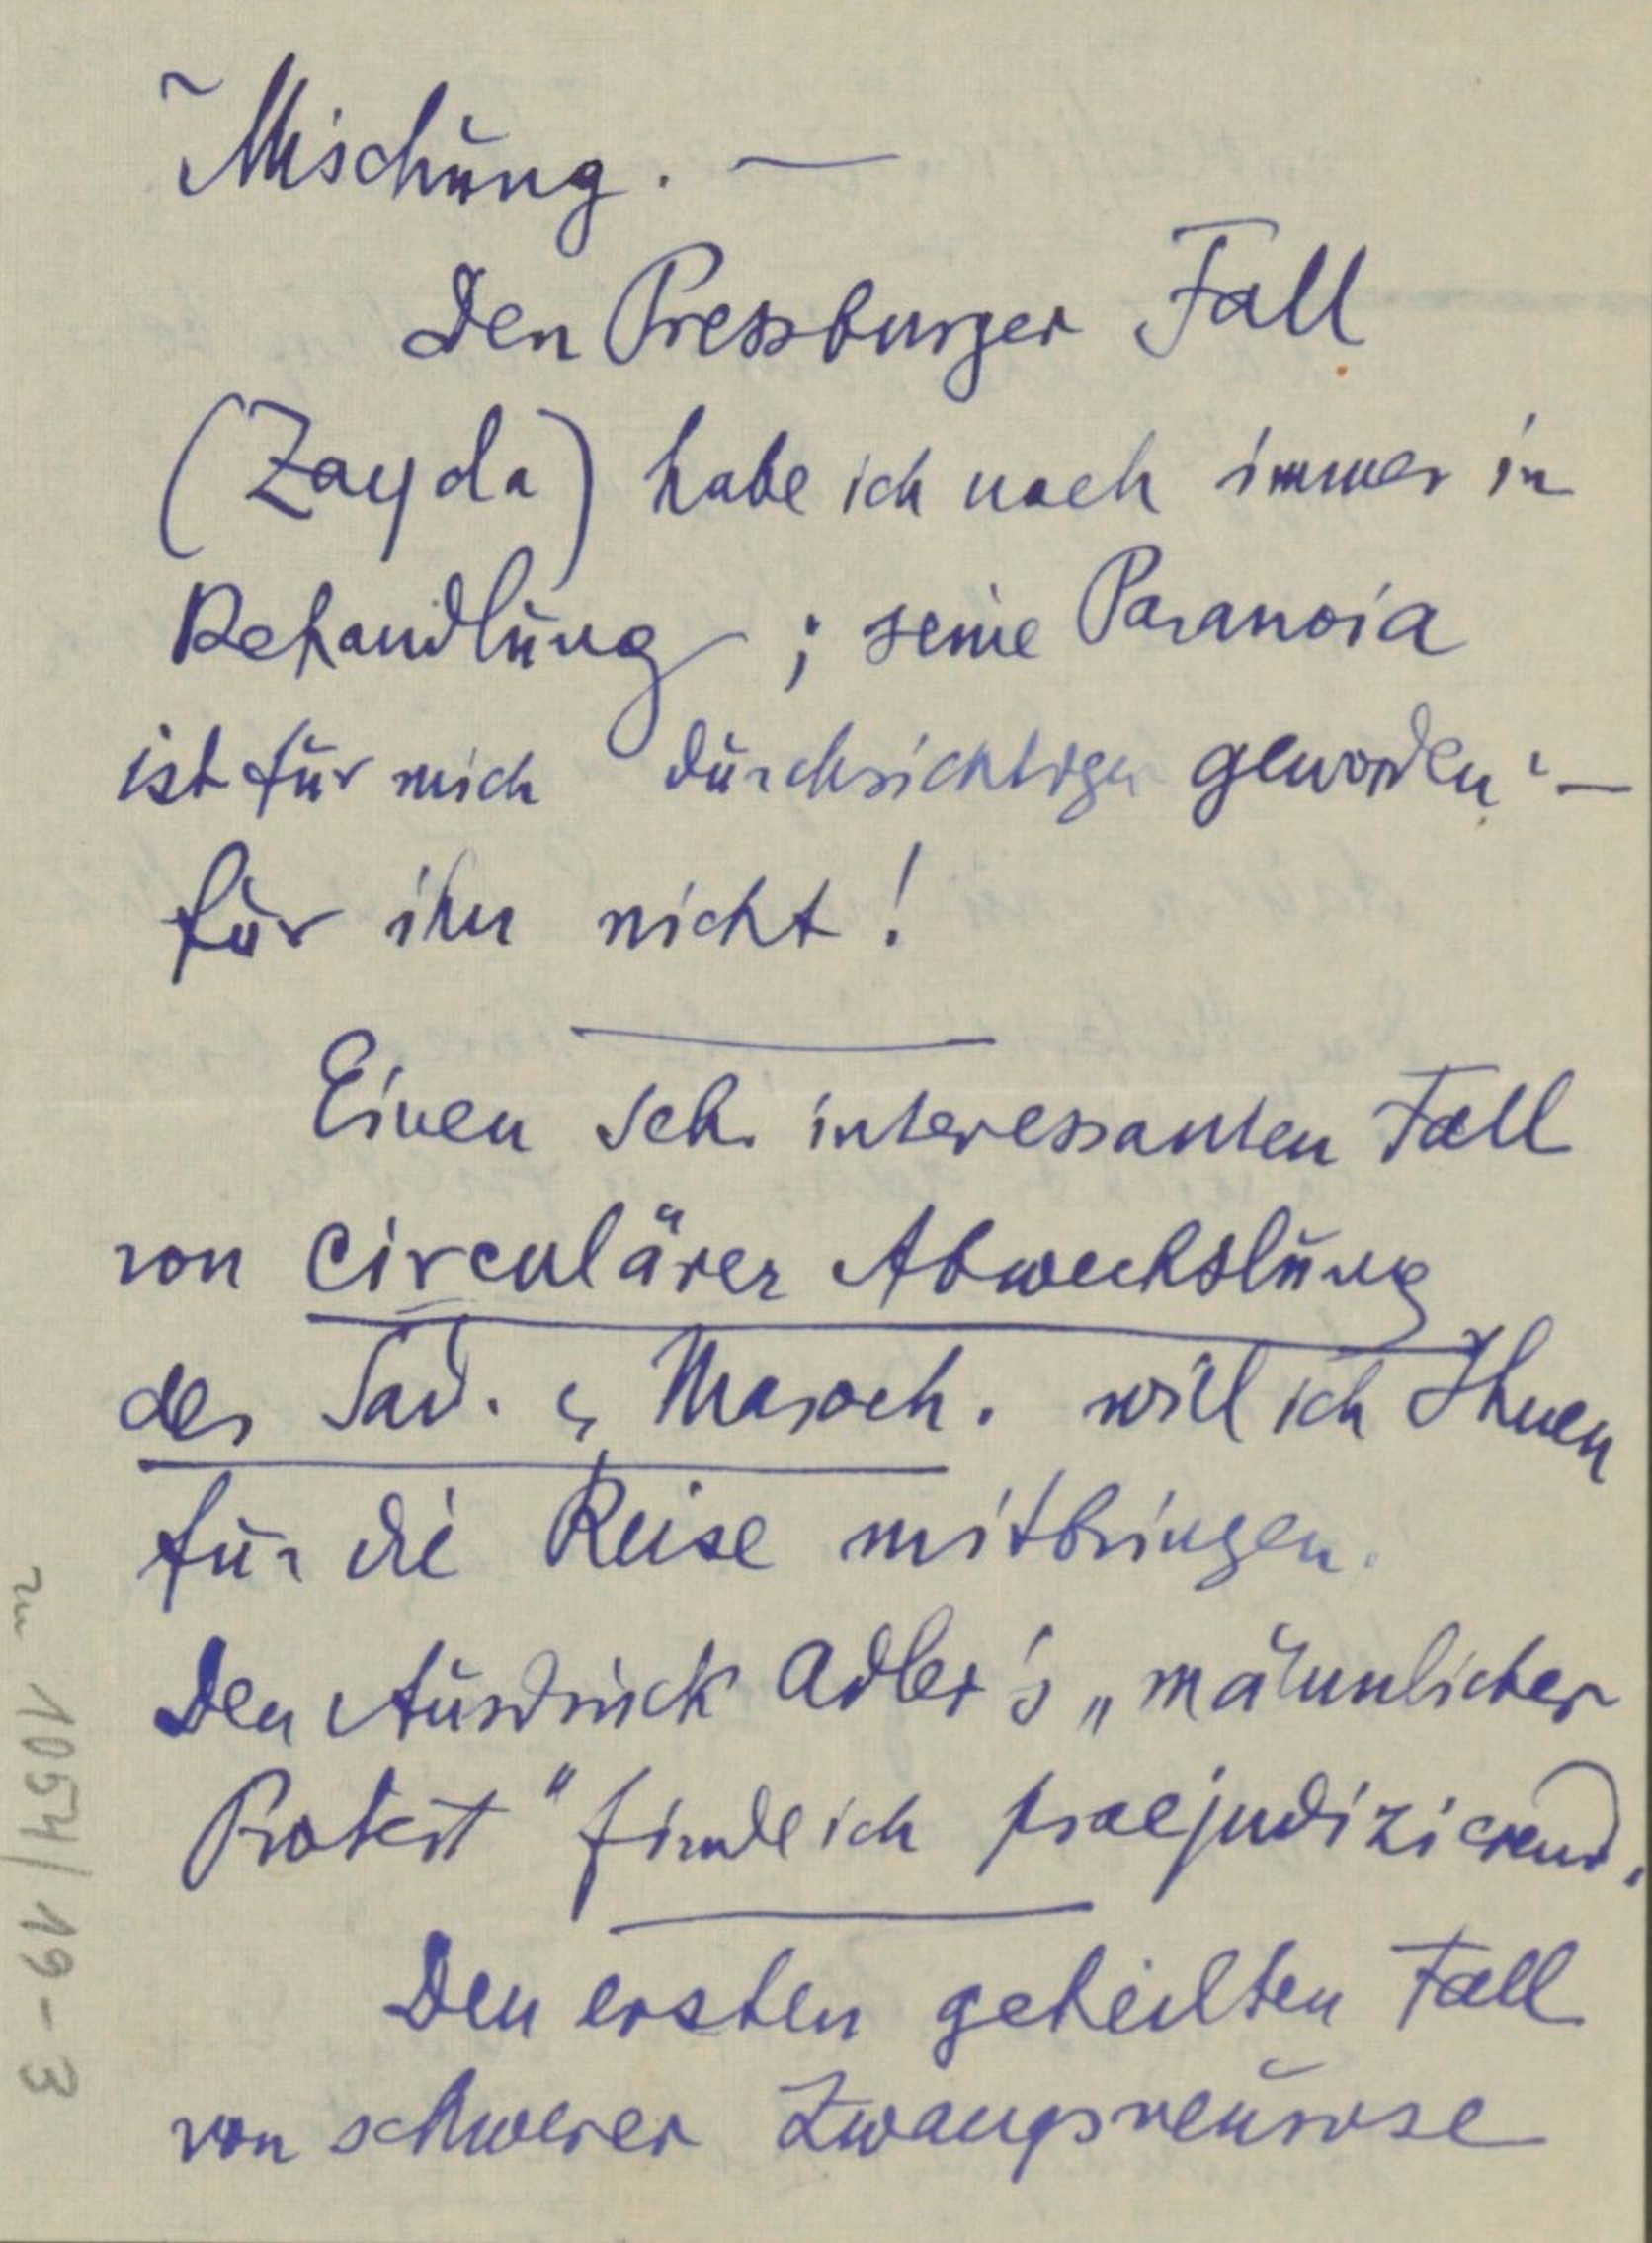 Mischung. —
Den Pressburger Fall
(Zayda) habe ich noch immer in
Behandlung; seine Paranoia
ist für mich durchsichtiger geworden; —
für ihn nicht!
Einen seh. interessanten Fall
von circulärer Abwechslung
des Sad. & Masoch. will ich Ihnen
für die Reise mitbringen.
Den Ausdruck Adler's „männlicher
Protest“ finde ich praejudizierend.
Den ersten geheilten Fall
von schwerer Zwangsneurose
zu 1054/19-3